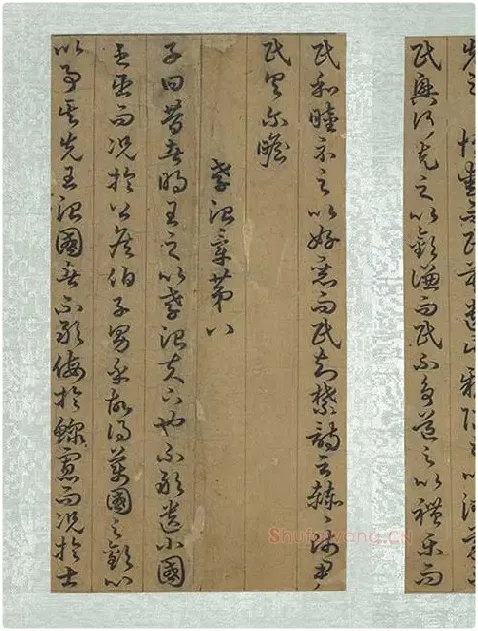 民興行先之以敬讓而民不爭道之以禮樂而
民和睦示之以好惡而民知禁詩云赫〻師尹
民具爾瞻
孝治章第八
子曰昔者明王之以孝治天下也不敢遺小國
之臣而況於公侯伯子男乎故得萬國之歡心
以事其先王治國者不敢侮於鰥寡而況於士
Shufawang.CN